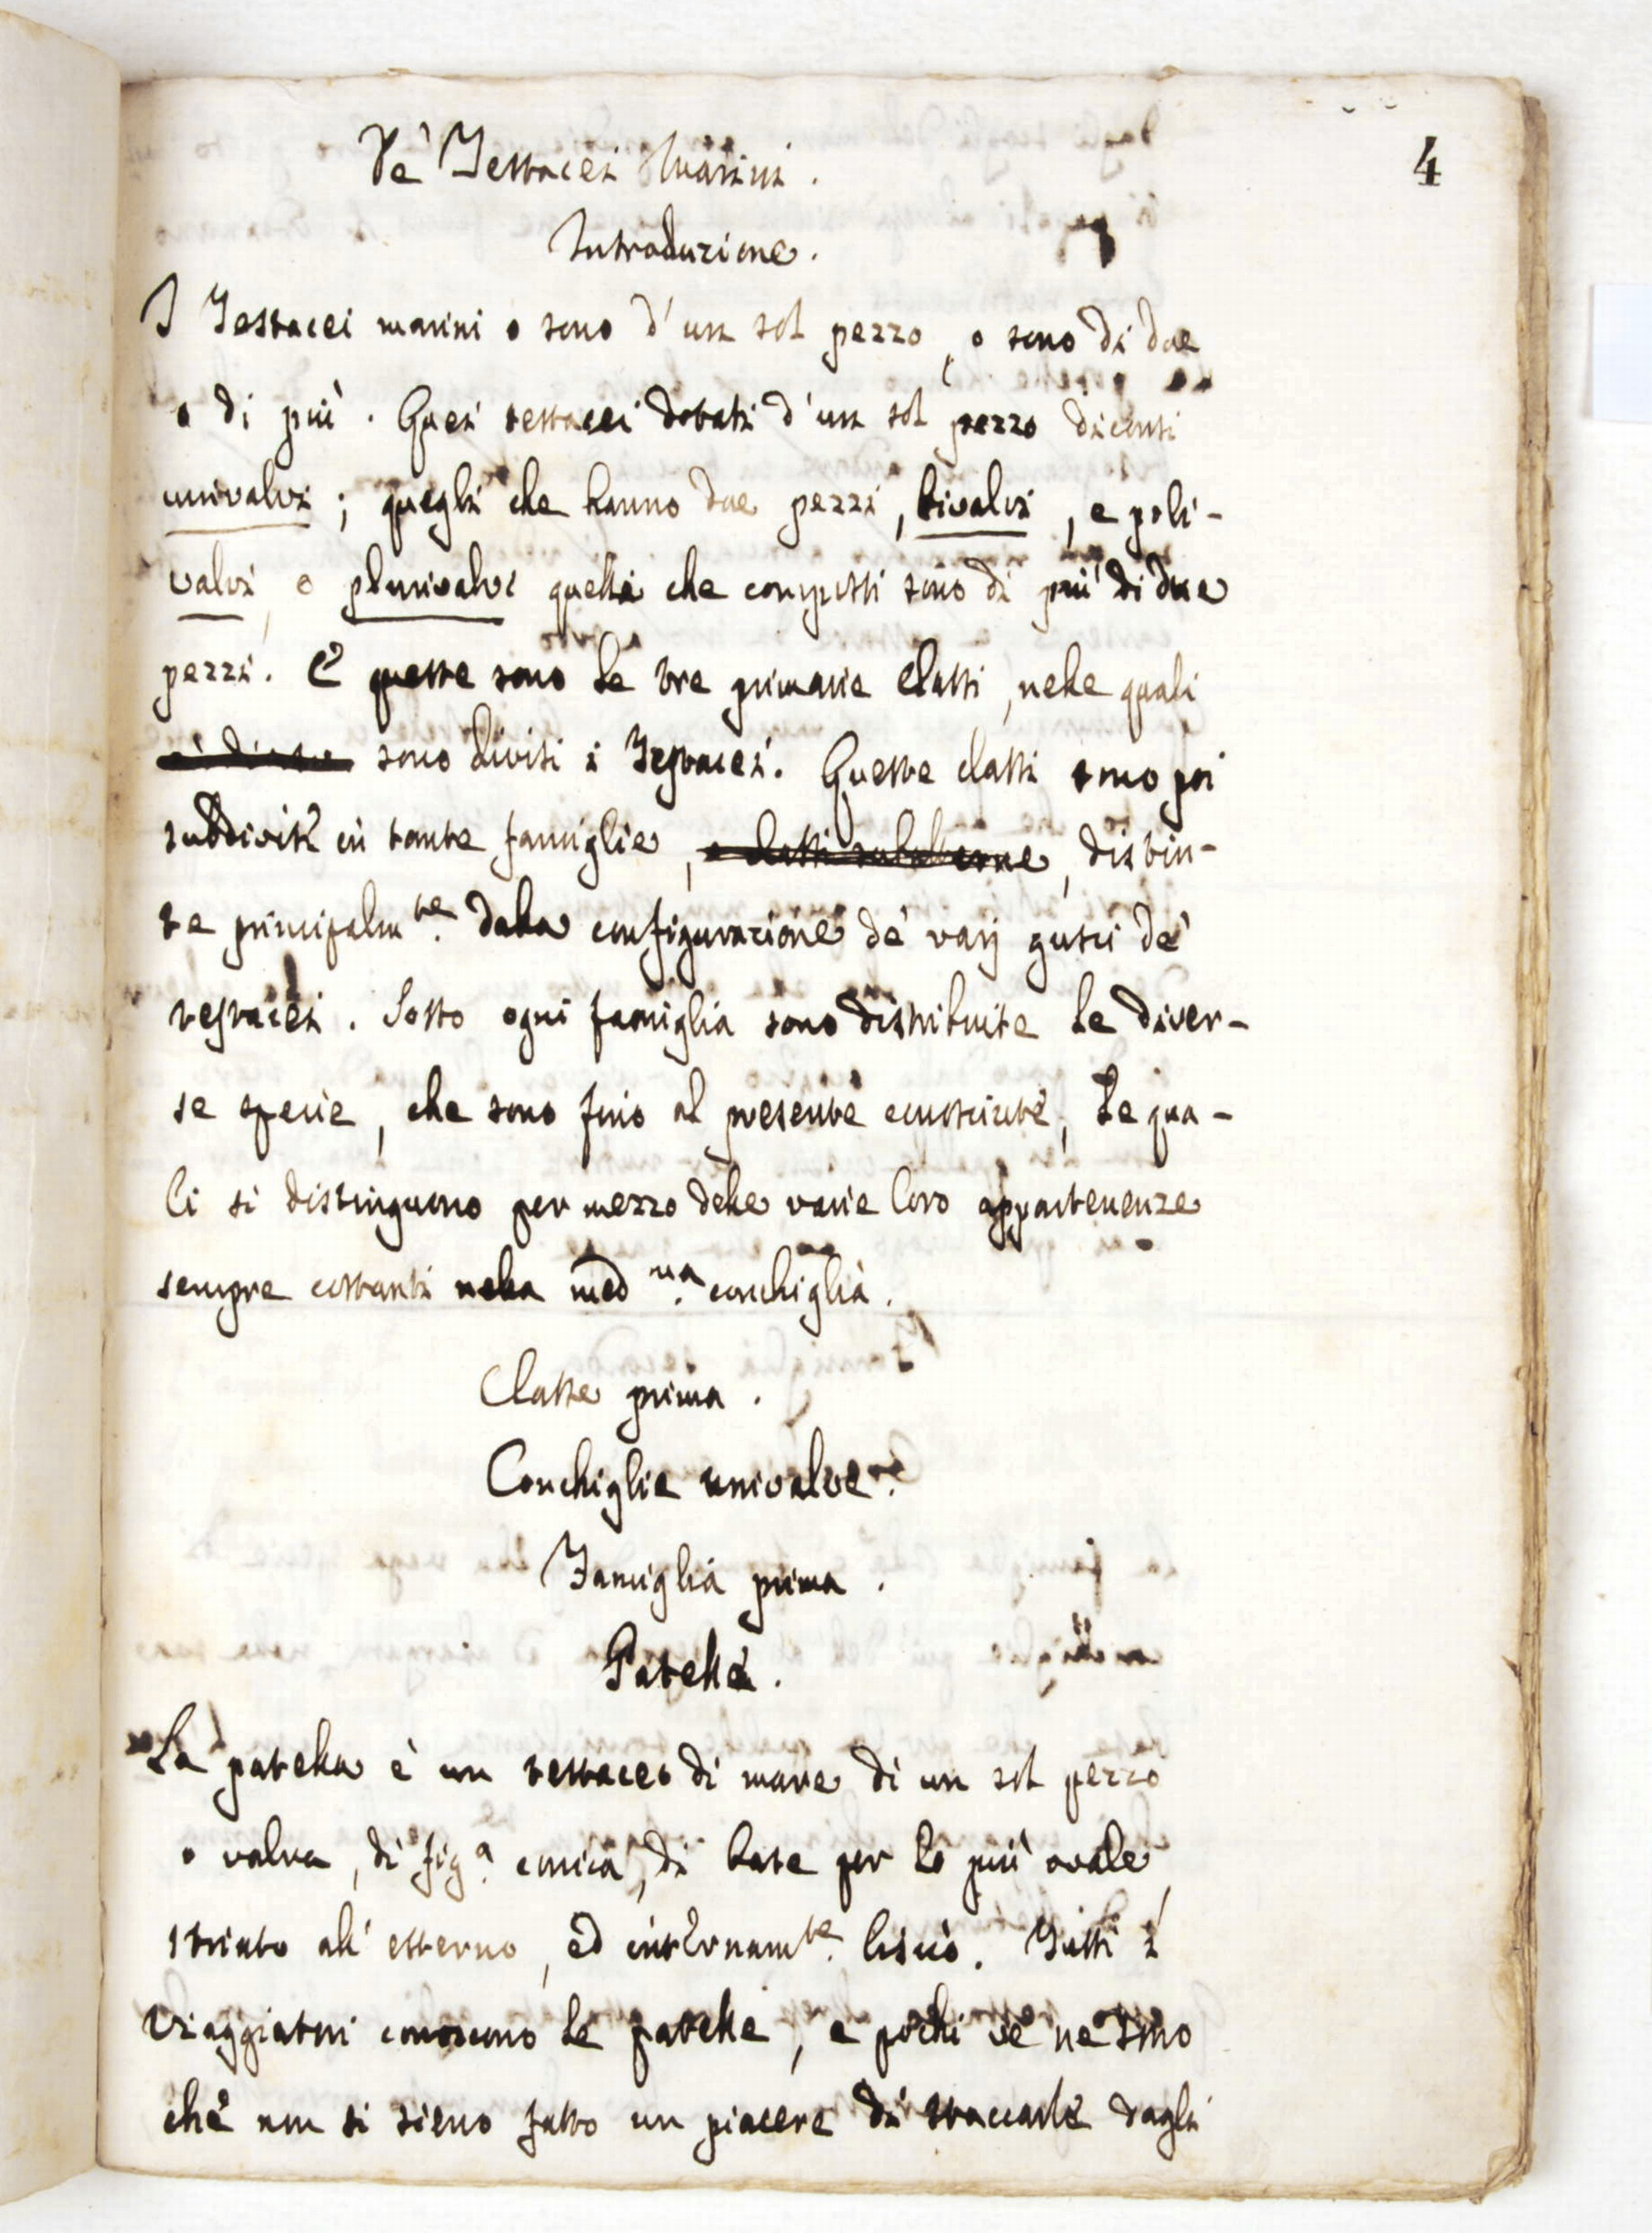 4
De' Testacei Marini.
Introduzione.
I Testacei marini o sono d'un sol pezzo, o sono di due
o di più. Quei testacei dotati d'un sol pezzo diconsi
univalvi; quegli che hanno due pezzi, bivalvi, e poli-
valvi, o plurivalvi quelli che composti sono di più di due
pezzi. E queste sono le tre primarie classi, nelle quali
sono divisi i Testacei. Queste classi sono poi
suddivise in tante famiglie, o classi subalterne, distin-
te principalm.te dalla configurazione de' varj gusci de'
testacei. Sotto ogni famiglia sono distribuite le diver-
se specie, che sono fino al presente conosciute, le qua-
li si distinguono per mezzo delle varie loro appartenenze
sempre costanti nella med.ma conchiglia.
Classe prima.
Conchiglie univalve.
Famiglia prima.
Patelle.
La patella è un testaceo di mare di un sol pezzo
o valva, di fig.a conica, di base per lo più ovale,
striato all'esterno, ed internam.te liscio. Tutti i
viaggiatori conoscono le patelle, e pochi ve ne sono
che non si sieno fatto un piacere di staccarle dagli